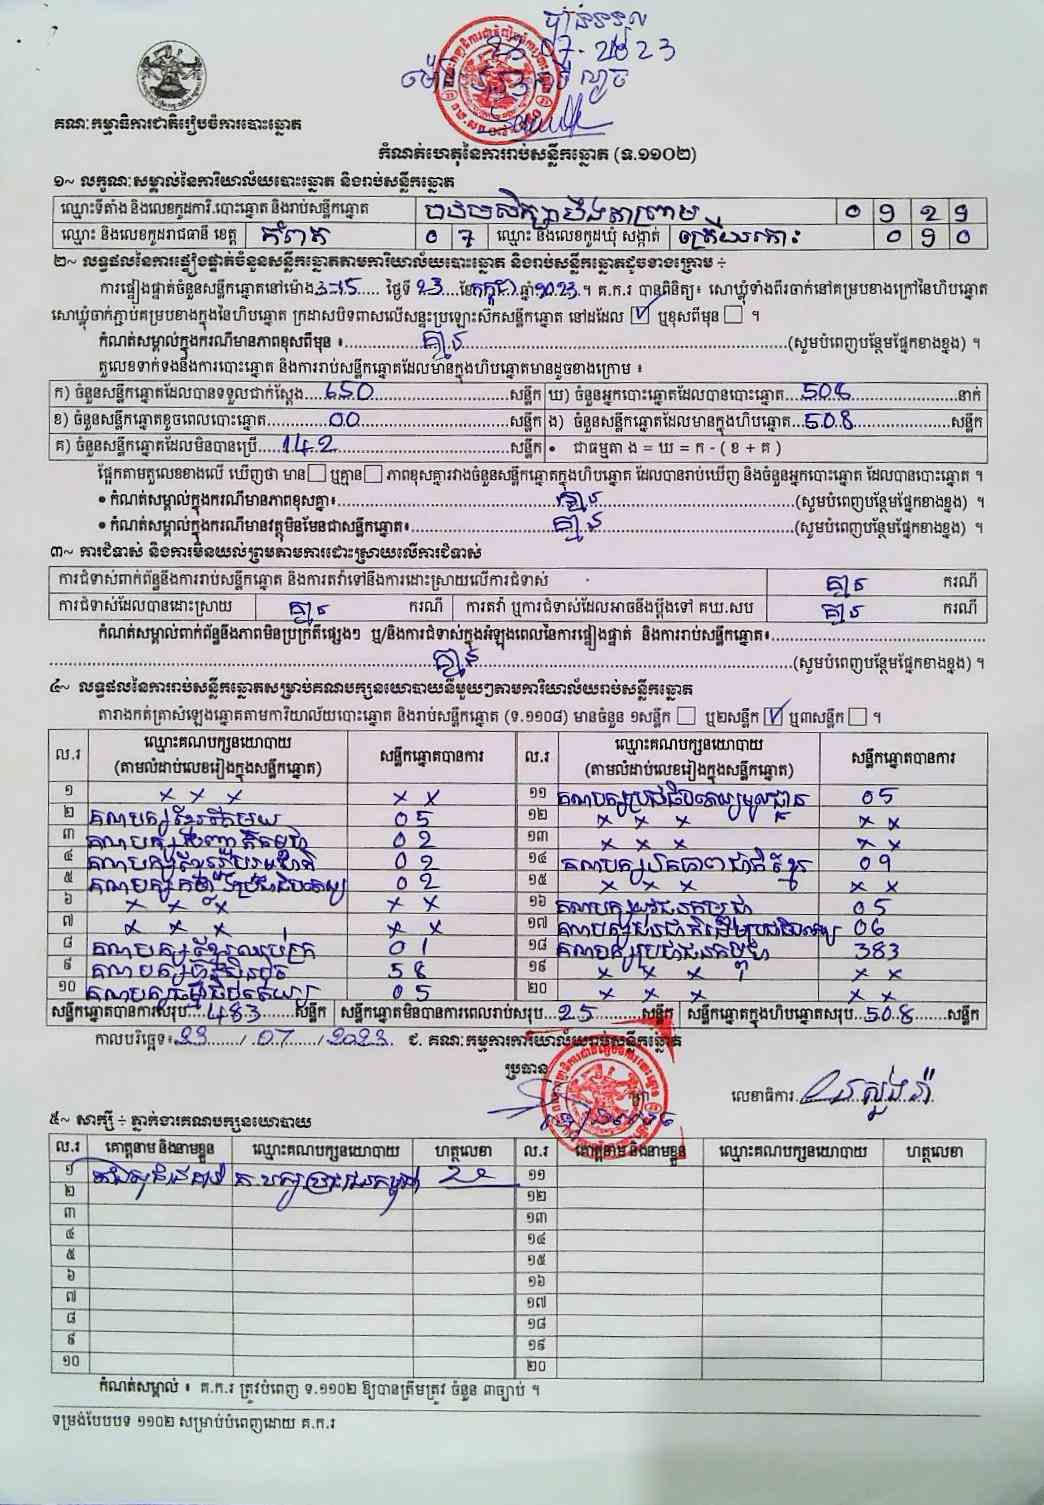 បានទទួល
23-07-2023
គណៈកម្មាធិការជាតិរៀបចំការបោះឆ្នោត
កំណត់ហេតុនៃការរាប់សន្លឹកឆ្នោត (ទ.១១០២)
១~ លក្ខណៈសម្គាល់នៃការិយាល័យបោះឆ្នោត និងរាប់សន្លឹកឆ្នោត
ឈ្មោះទីតាំង និងលេខកូដការិ.បោះឆ្នោត និងរាប់សន្លឹកឆ្នោត
ឈ្មោះ និងលេខកូដរាជធានី ខេត្ត កំពត ០ ៧ ឈ្មោះ និងលេខកូដឃុំ សង្កាត់ ត្រើយកោះ ០ ៩ ០
២~ លទ្ធផលនៃការផ្ទៀងផ្ទាត់ចំនួនសន្លឹកឆ្នោតតាមការិយាល័យបោះឆ្នោត និងរាប់សន្លឹកឆ្នោតដូចខាងក្រោម ÷
ការផ្ទៀងផ្ទាត់ចំនួនសន្លឹកឆ្នោតនៅម៉ោង 3-15 ថ្ងៃទី 23 ខែ កក្កដា ឆ្នាំ 2023 ។ គ.ក.រ បានពិនិត្យ៖ សោឃ្លុំទាំងពីរចាក់នៅគម្របខាងក្រៅនៃហិបឆ្នោត
សោឃ្លុំចាក់ភ្ជាប់គម្របខាងក្នុងនៃហិបឆ្នោត ក្រដាសបិទពាសលើសន្ទះប្រឡោះស៊កសន្លឹកឆ្នោត នៅដដែល ☑ ឬខុសពីមុន ☐ ។
កំណត់សម្គាល់ក្នុងករណីមានភាពខុសពីមុន ៖ គ្មាន (សូមបំពេញបន្ថែមផ្នែកខាងខ្នង) ។
តួលេខទាក់ទងនឹងការបោះឆ្នោត និងការរាប់សន្លឹកឆ្នោតដែលមានក្នុងហិបឆ្នោតមានដូចខាងក្រោម ៖
ក) ចំនួនសន្លឹកឆ្នោតដែលបានទទួលជាក់ស្តែង 650 សន្លឹក ឃ) ចំនួនអ្នកបោះឆ្នោតដែលបានបោះឆ្នោត 508 នាក់
ខ) ចំនួនសន្លឹកឆ្នោតខូចពេលបោះឆ្នោត 00 សន្លឹក ង) ចំនួនសន្លឹកឆ្នោតដែលមានក្នុងហិបឆ្នោត 508 សន្លឹក
គ) ចំនួនសន្លឹកឆ្នោតដែលមិនបានប្រើ 142 សន្លឹក • ជាធម្មតា ង = ឃ = ក - ( ខ + គ )
ផ្អែកតាមតួលេខខាងលើ ឃើញថា មាន ☐ ឬគ្មាន ☐ ភាពខុសគ្នារវាងចំនួនសន្លឹកឆ្នោតក្នុងហិបឆ្នោត ដែលបានរាប់ឃើញ និងចំនួនអ្នកបោះឆ្នោត ដែលបានបោះឆ្នោត ។
• កំណត់សម្គាល់ក្នុងករណីមានភាពខុសគ្នា៖ គ្មាន (សូមបំពេញបន្ថែមផ្នែកខាងខ្នង) ។
• កំណត់សម្គាល់ក្នុងករណីមានវត្ថុមិនមែនជាសន្លឹកឆ្នោត៖ គ្មាន (សូមបំពេញបន្ថែមផ្នែកខាងខ្នង) ។
៣~ ការជំទាស់ និងការមិនយល់ព្រមតាមការដោះស្រាយលើការជំទាស់
ការជំទាស់ពាក់ព័ន្ធនឹងការរាប់សន្លឹកឆ្នោត និងការតវ៉ាទៅនឹងការដោះស្រាយលើការជំទាស់ គ្មាន ករណី
ការជំទាស់ដែលបានដោះស្រាយ គ្មាន ករណី ការតវ៉ា ឬការជំទាស់ដែលអាចនឹងប្តឹងទៅ គឃ.សប គ្មាន ករណី
កំណត់សម្គាល់ពាក់ព័ន្ធនឹងភាពមិនប្រក្រតីផ្សេងៗ ឬ/និងការជំទាស់ក្នុងអំឡុងពេលនៃការផ្ទៀងផ្ទាត់ និងការរាប់សន្លឹកឆ្នោត៖
គ្មាន (សូមបំពេញបន្ថែមផ្នែកខាងខ្នង) ។
៤~ លទ្ធផលនៃការរាប់សន្លឹកឆ្នោតសម្រាប់គណបក្សនយោបាយនីមួយៗតាមការិយាល័យរាប់សន្លឹកឆ្នោត
តារាងកត់ត្រាសំឡេងឆ្នោតតាមការិយាល័យបោះឆ្នោត និងរាប់សន្លឹកឆ្នោត (ទ.១១០៨) មានចំនួន ១សន្លឹក ☐ ឬ២សន្លឹក ☑ ឬ៣សន្លឹក ☐ ។
ល.រ ឈ្មោះគណបក្សនយោបាយ សន្លឹកឆ្នោតបានការ ល.រ ឈ្មោះគណបក្សនយោបាយ សន្លឹកឆ្នោតបានការ
(តាមលំដាប់លេខរៀងក្នុងសន្លឹកឆ្នោត) (តាមលំដាប់លេខរៀងក្នុងសន្លឹកឆ្នោត)
១ x x x x x ១១ គណបក្សប្រជាធិបតេយ្យមូលដ្ឋាន 05
២ គណបក្សខ្មែរតែមួយ 05 ១២ x x x x x
៣ 02 ១៣ x x x x x
៤ 02 ១៤ គណបក្សឯកភាពជាតិខ្មែរ 09
៥ 02 ១៥ x x x x x
៦ x x x x x ១៦ គណបក្សយុវជនកម្ពុជា 05
៧ x x x x x ១៧ 06
៨ 01 ១៨ គណបក្សប្រជាជនកម្ពុជា 383
៩ គណបក្សហ៊្វុនស៊ិនប៉ិច 58 ១៩ x x x x x
១០ គណបក្សធម្មាធិបតេយ្យ 05 ២០ x x x x x
សន្លឹកឆ្នោតបានការសរុប 483 សន្លឹក សន្លឹកឆ្នោតមិនបានការពេលរាប់សរុប 25 សន្លឹក សន្លឹកឆ្នោតក្នុងហិបឆ្នោតសរុប 508 សន្លឹក
កាលបរិច្ឆេទ៖ 23 / 07 / 2023 ជ. គណៈកម្មការការិយាល័យរាប់សន្លឹកឆ្នោត
ប្រធាន
លេខាធិការ
៥~ សាក្សី ÷ ភ្នាក់ងារគណបក្សនយោបាយ
ល.រ គោត្តនាម និងនាមខ្លួន ឈ្មោះគណបក្សនយោបាយ ហត្ថលេខា ល.រ គោត្តនាម និងនាមខ្លួន ឈ្មោះគណបក្សនយោបាយ ហត្ថលេខា
១ គ.បក្សប្រជាជនកម្ពុជា ១១
២ ១២
៣ ១៣
៤ ១៤
៥ ១៥
៦ ១៦
៧ ១៧
៨ ១៨
៩ ១៩
១០ ២០
កំណត់សម្គាល់ ៖ គ.ក.រ ត្រូវបំពេញ ទ.១១០២ ឱ្យបានត្រឹមត្រូវ ចំនួន ៣ច្បាប់ ។
ទម្រង់បែបបទ ១១០២ សម្រាប់បំពេញដោយ គ.ក.រ